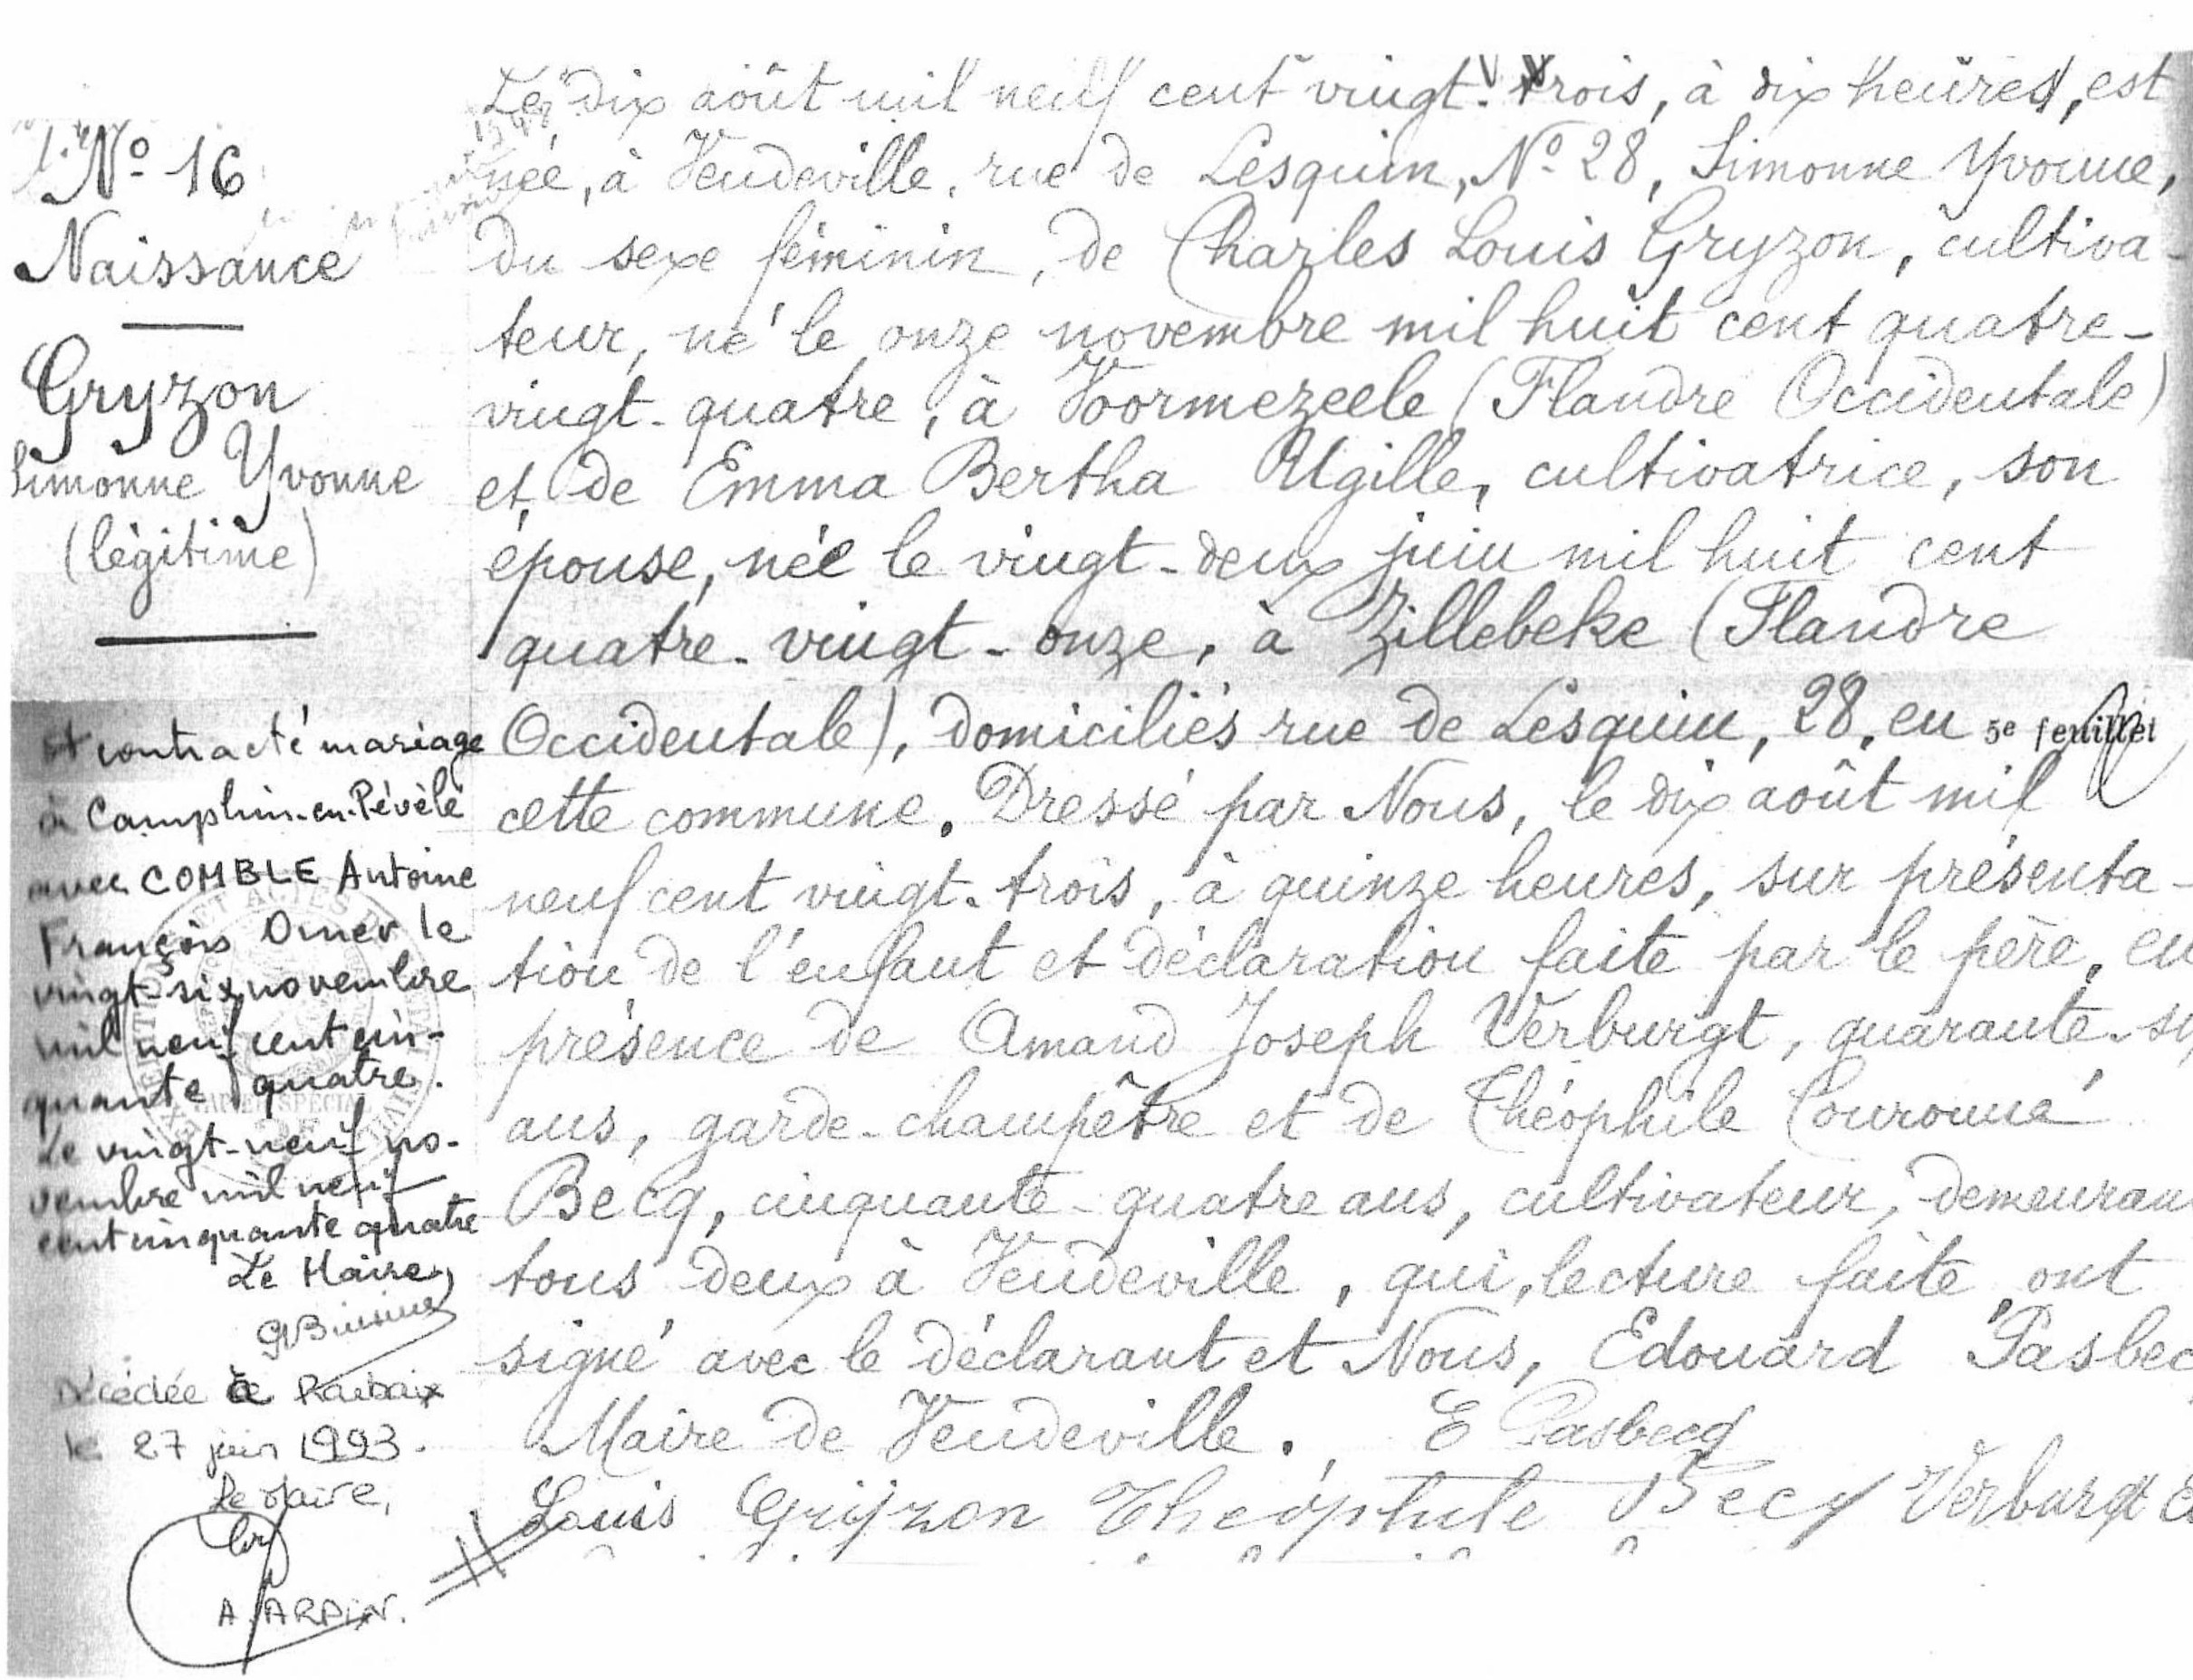 Nº 16
Naissance
Gryzon
Simonne Yvonne
(légitime)
Le dix août mil neuf cent vingt-trois, à dix heures, est
née, à Vendeville, rue de Lesquin, Nº 28, Simonne Yvonne,
du sexe féminin, de Charles Louis Gryzon, cultiva-
teur, né le onze novembre mil huit cent quatre-
vingt-quatre, à Voormezeele (Flandre Occidentale)
et de Emma Bertha Ugille, cultivatrice, son
épouse, née le vingt-deux juin mil huit cent
quatre-vingt-onze, à Zillebeke (Flandre
Occidentale), domiciliés rue de Lesquin, 28, en
5e feuillet
cette commune. Dressé par Nous, le dix août mil
neuf cent vingt-trois, à quinze heures, sur présenta-
tion de l'enfant et déclaration faite par le père, en
présence de Amand Joseph Verburgt, quarante-si
ans, garde-champêtre et de Théophile Couronné
Bécq, cinquante-quatre ans, cultivateur, demeuran
tous deux à Vendeville, qui, lecture faite, ont
signé avec le déclarant et Nous, Edouard Pasbec
Maire de Vendeville. E Pasbecq
Louis Grijzon Théophile Becq Verburgt
contracté mariage
à Camphin-en-Pévèle
avec COMBLE Antoine
François Omer le
vingt-six novembre
mil neuf cent cin-
quante quatre.
Le vingt-neuf no-
vembre mil neuf
cent cinquante quatre
Le Maire,
Décédée à Roubaix
le 27 juin 1993.
Le Maire,
A. ARPIN.